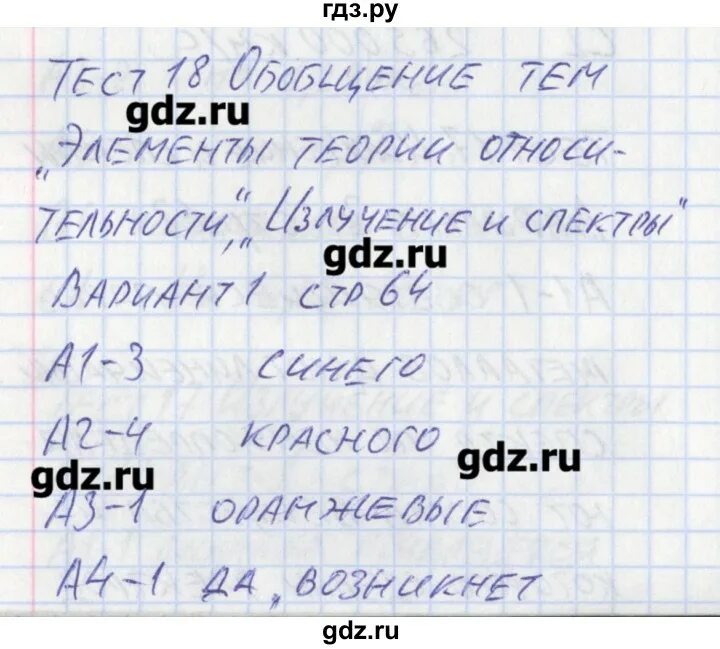 гдз.ру
Тест 18 Обобщение тем
gdz.ru
„Элементы теории относи-
тельности", „Излучение и спектры"
gdz.ru
Вариант 1 стр 64
А1-3 синего
А2-4 красного
gdz.ru
gdz.ru
А3-1 оранжевые
А4-1 да, возникнет
gdz.ru